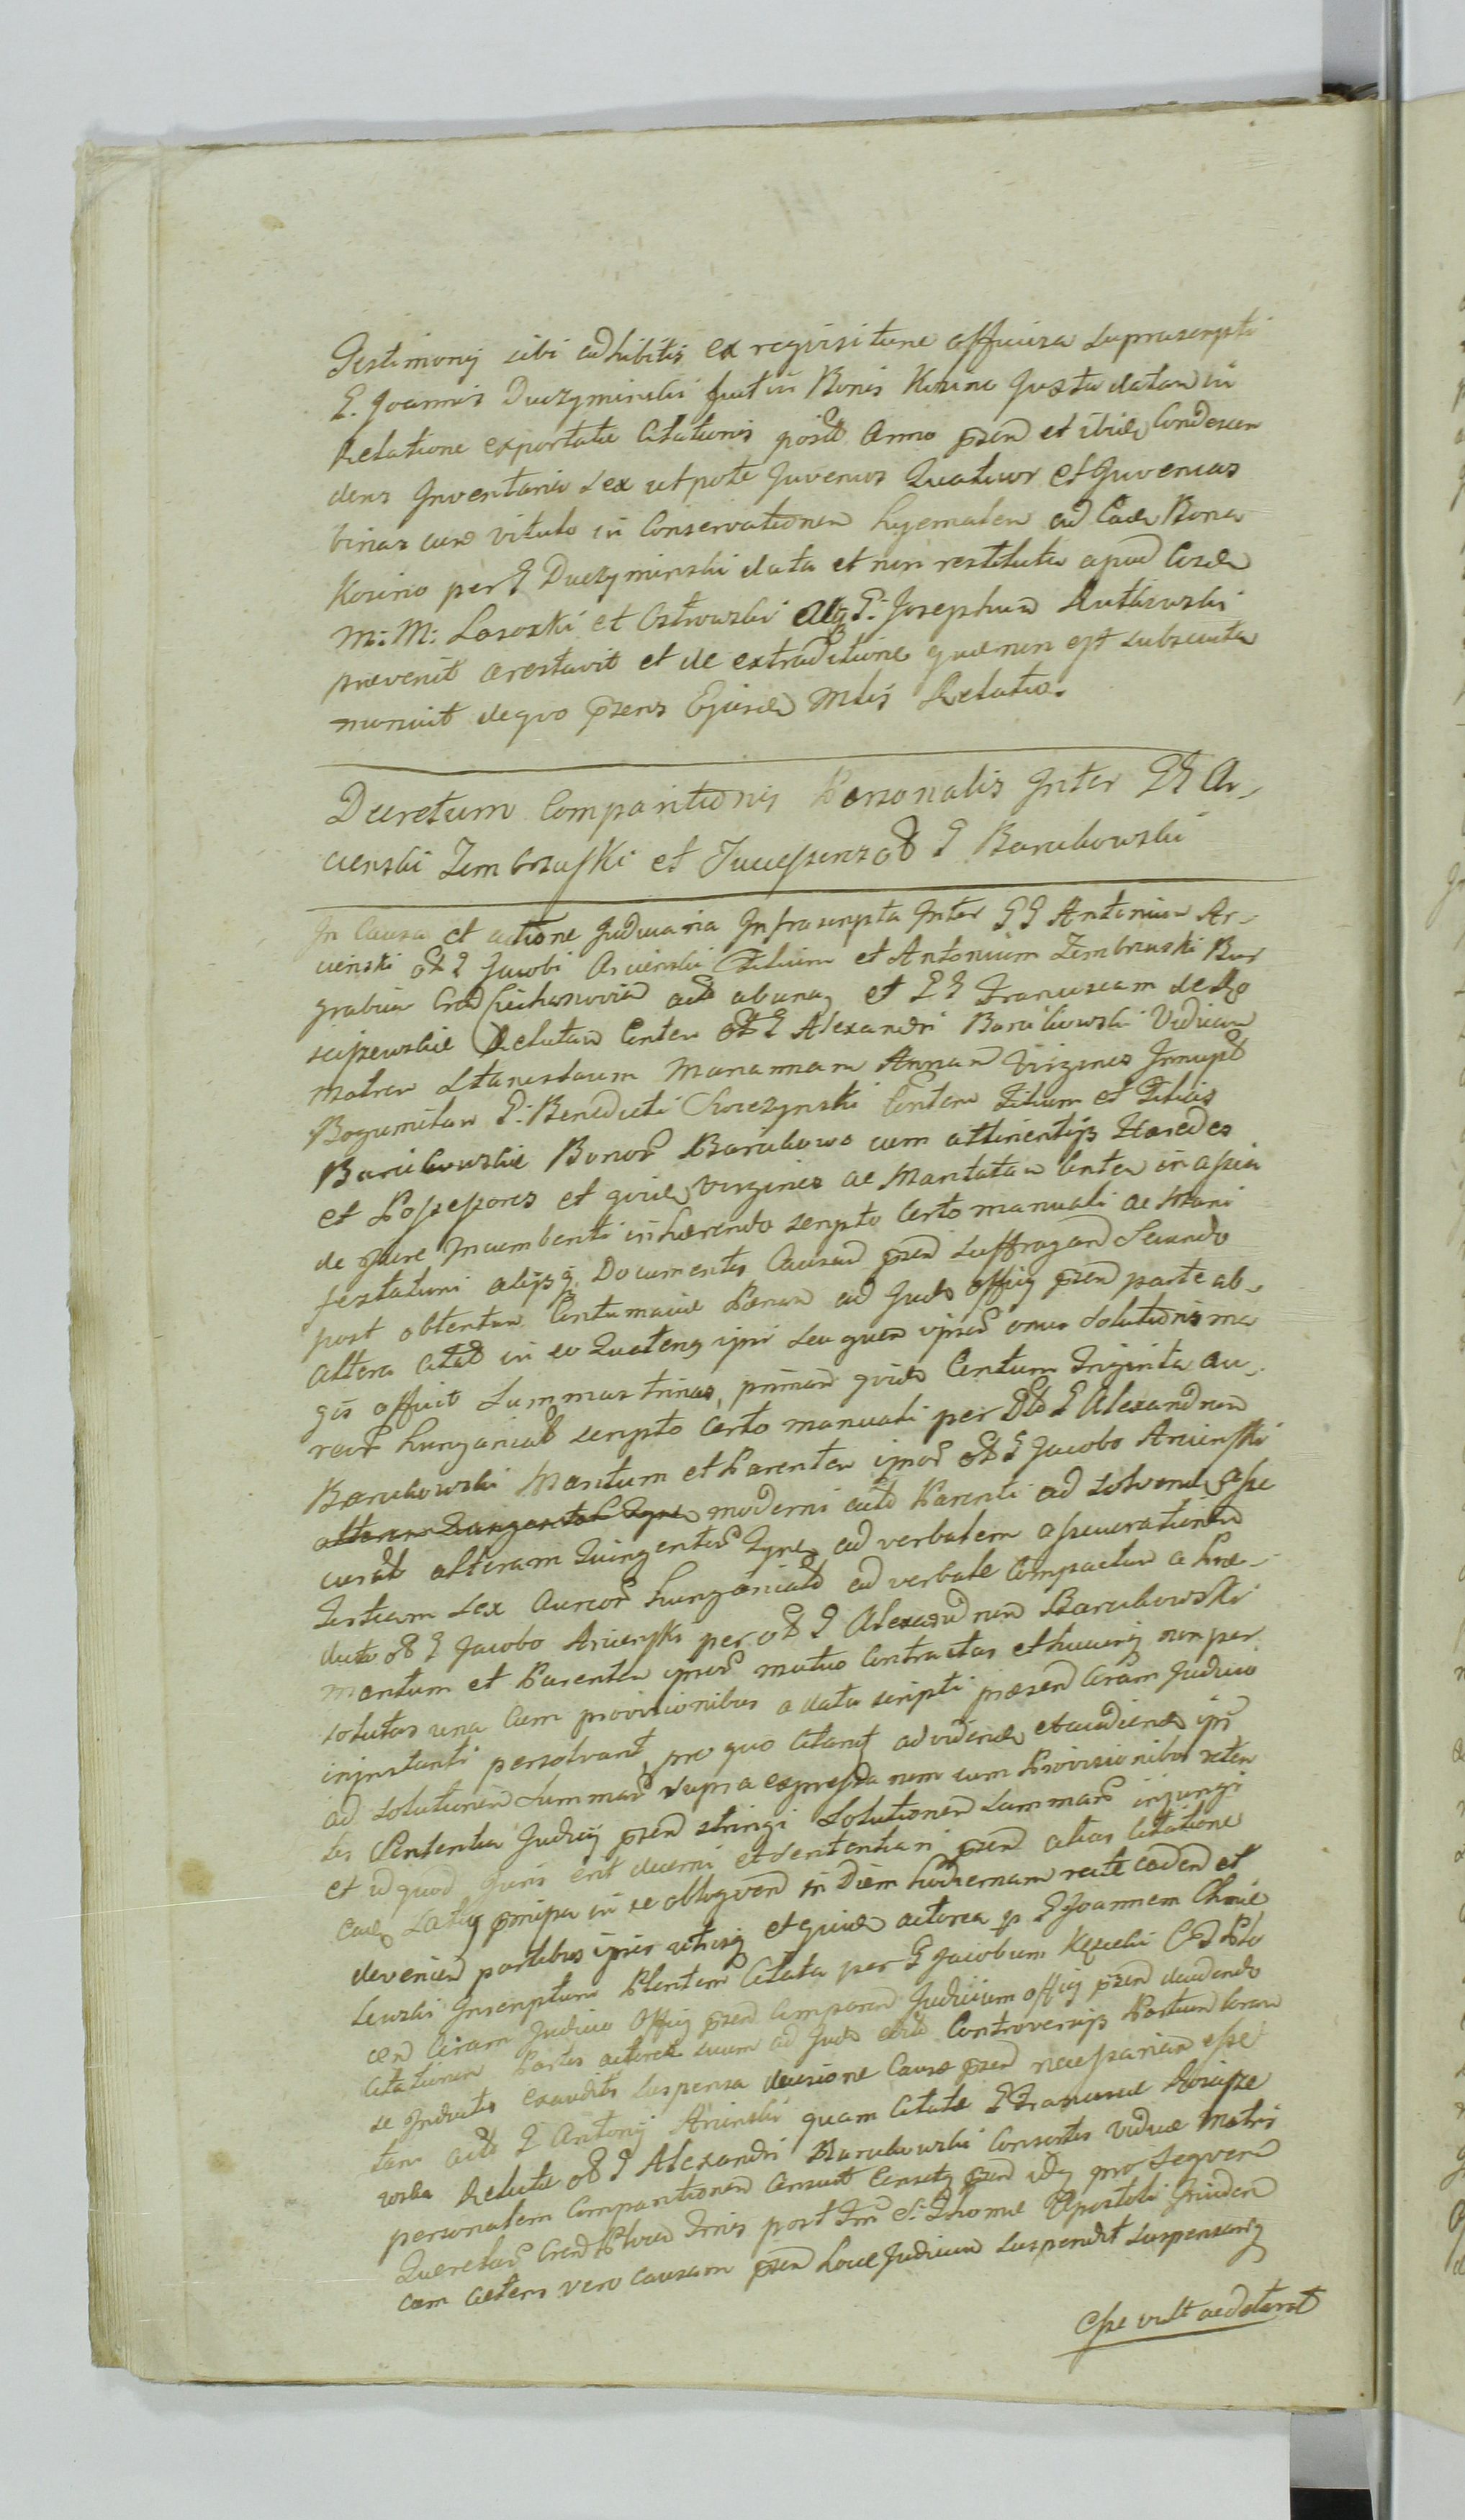 Testimonij sibi adhibitis ex reqvisitione officiosa suprascripti
G. Joannis Duczyminski fuit in Bonis Kosino Juxta datam in
Relatione exportatae Citationis posit Anno psen et ibid Condescen
dens Inventaria sex utpote Juvencos Quatuor et Juvencas
binas cum vitulo in Conservationem hyemalem ad Ead Bona
Kosino per G Duczyminski data et non restituta apud Eosd
M: M: Lasoxki et Ostrowski Atq G: Josephum Rutkowski
praevenit arestavit et de extraditione quae non est subsecuta
monuit de qvo psens Ejusd Mlis Relatio.
Decretum Comparitionis Personalis Inter GG Ar-
cienski Zembrzuski et Successores ol G Barcikowski
In Causa et actione Judiciaria Infrascripta Inter GG Antonium Ar-
cienski ol G Jacobi Arcienski Filium et Antonium Zembrzuski Bur
grabium Cren Ciechanovien act ab una et GG Franciscam de Ro
scipewskie Relictam Consten ol G Alexandri Barcikowski Viduam
Matrem Stanislaum Mariannam Annam Virgines Innupt
Bogumilam G: Benedicti Choczynski Consten Filium et Filias
Barcikowskie Bonor Barcikowo cum attinentijs Haeredes
et Possessores et qvid Virgines ac Maritatam Consten in assia
de Jure Incumbenti inhaerendo scripto Certo manuali ac Mani
festationi alijsq Documentis Causam psen suffragan Secundo
post obtentam Contumaciae Paenam ad Jud offij psen parte ab
altera citat in eo Quatenus ipsi seu quem ipsor onus solutionis ma
gis afficit Summas trinas, primam qvid Centum Triginta au-
reor hungarical scripto Certo manuali per olt G Alexandrum
Barcikowski Maritum et Parentem ipsor olt G Jacobo Arcienski
moderni act Parenti ad solvend asse
curat alteram Quingentor Tynf ad verbalem assecurationem
Tertiam sex Aureor hungarical ad verbale Compactum a Prae-
dicto ol G Jacobo Arcienski per ol G Alexandrum Barcikowski
Maritum et Parentem ipsor mutuo Contractas et hucusq non per
solutas una Cum provisionibus a data scripti praesen Coram Judicio
in instanti persolvant, pro quo Citant ad videnد et audiend ipsi
ad solutionem Summar supra expressa rum cum Provisionibus reten
tis Sententia Judicij psen stringi Solutionem Summar injungi
et id quod Juris erit decerni et Sententiari psen alias Citatione
Ead Latius praemissa in se obloqven in Diem hodiernam recte caden et
devenien partibus ipsis utrisq et qvid actorea p G Joannem Chmie
lewski Inscriptum Plentem Citata per G Jacobum Kęsicki Cren Plo
cen Coram Judicio Offij psen Comparen Judicium offij psen deudendo
Citationem Partis actoreae suum ad Jud eor Controversijs Partium Coram
se Inductis exauditis suspensa decisione Causae psen necessariam esse
tam act G Antonij Arcienski quam Citatae G Franciscae Roscisze
wska Relictae ol G Alexandri Barcikowski Consortis Viduae Matris
personalem Comparitionem censuit Censetq psen idq pro Seqven
Querelar Cren Plocen Trnis post Fm S: Thomae Apostoli Inciden
Cum Caetero vero causam psen hocce Judicium Suspendit Suspensamq
esse vult ac declarat